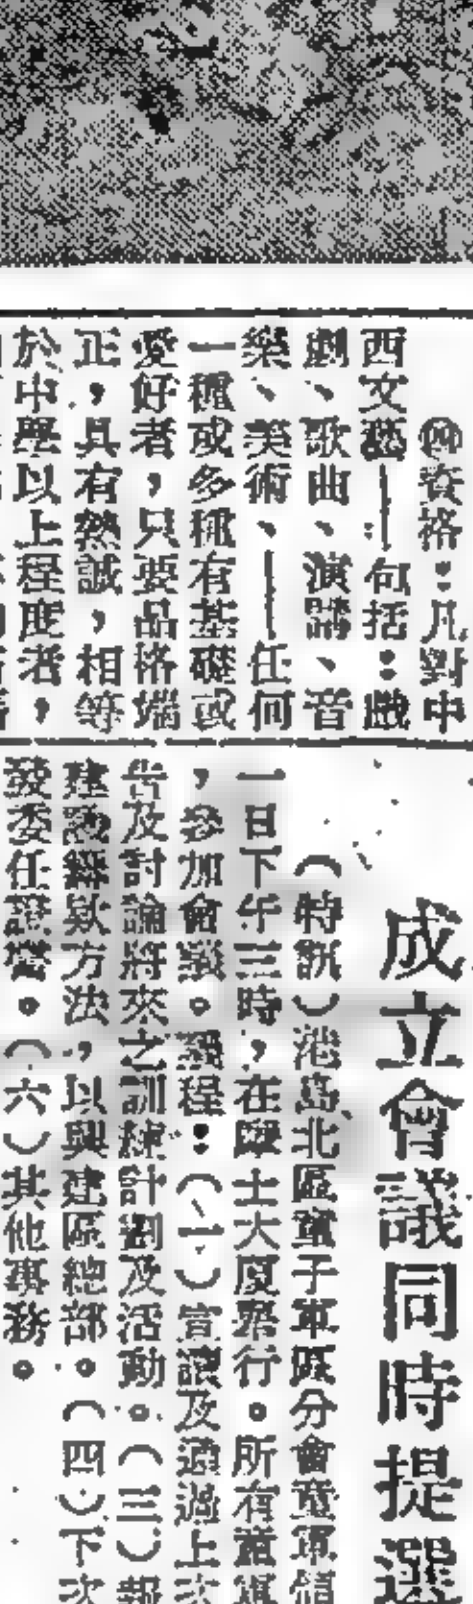 ㈣資格：凡對中
西文藝——包括：戲
劇、歌曲、演講、音
樂、美術、——任何
一種或多種有基礎或
愛好者，只要品格端
正，具有熱誠，相等
於中學以上程度者，
成立會議同時提選
（特訊）港島北區童子軍區分會童軍領
一日下午三時，在 士大厦舉行。所有童軍
，參加會議。議程：（一）宣讀及通過上次
告及討論將來之訓練計劃及活動。（三）報
建 籌欵方法，以興建區總部。（四）下次
發委任證書。（六）其他事務。